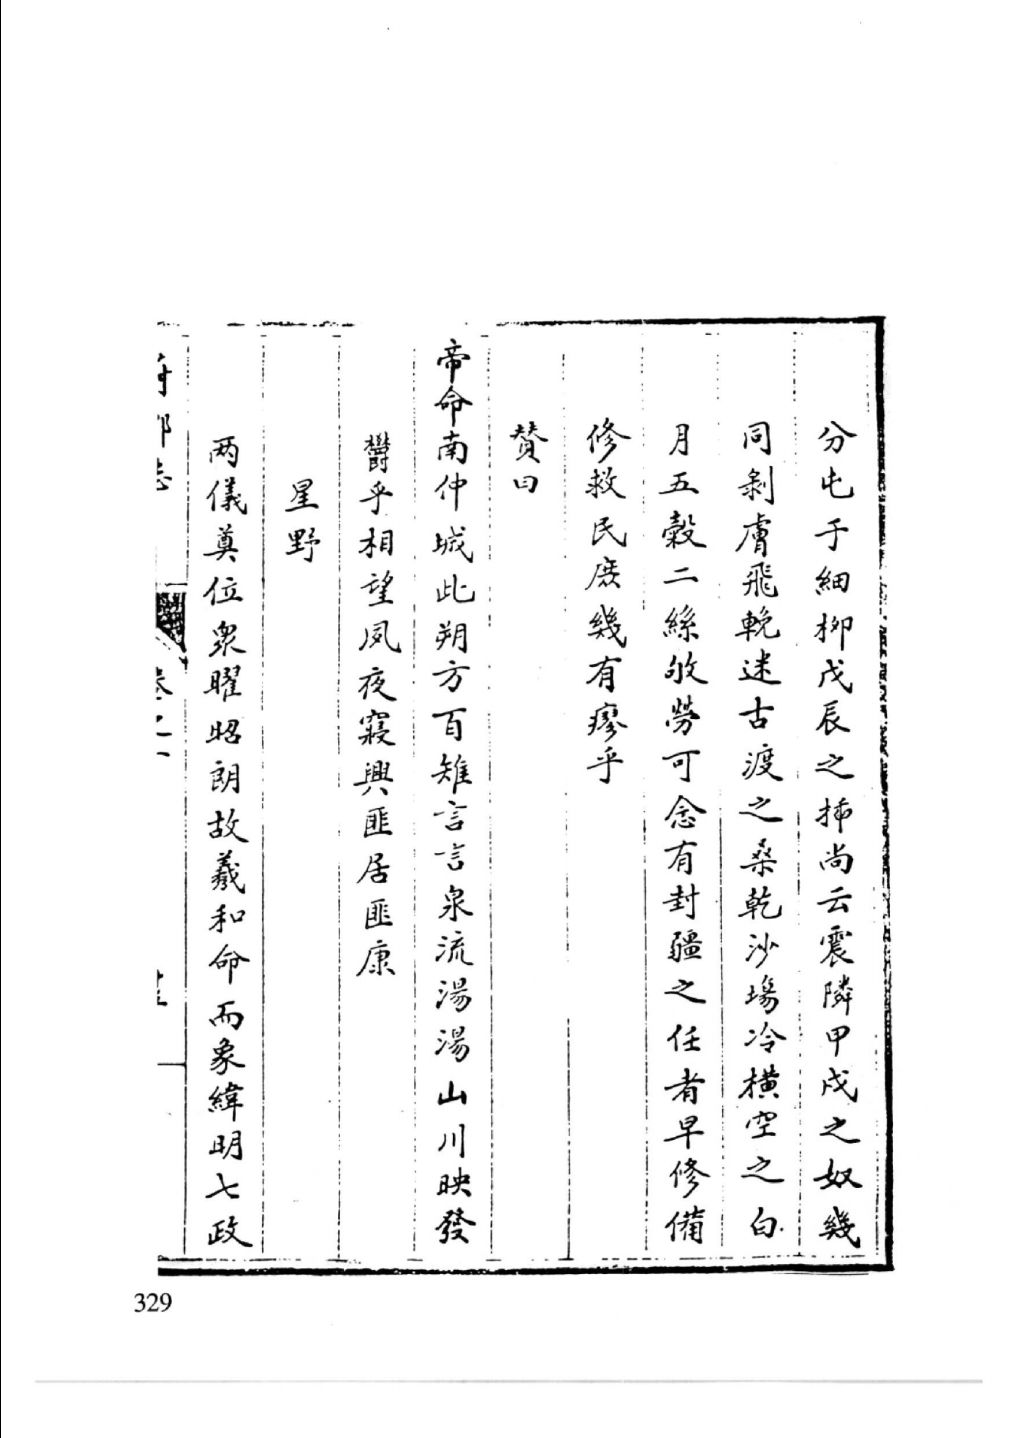 分屯于細柳戊辰之揷尚云震隣甲戌之奴幾
同剝膚飛輓迷古渡之桑乾沙塲冷橫空之白
月五穀二絲攸勞可念有封疆之任者早修備
修救民庶幾有瘳乎
贊曰
帝命南仲城此朔方百雉言言泉流湯湯山川映發
欝乎相望夙夜寢興匪居匪康
星野
两儀奠位衆曜昭朗故羲和命而象緯明七政
府郡志
卷之一
329